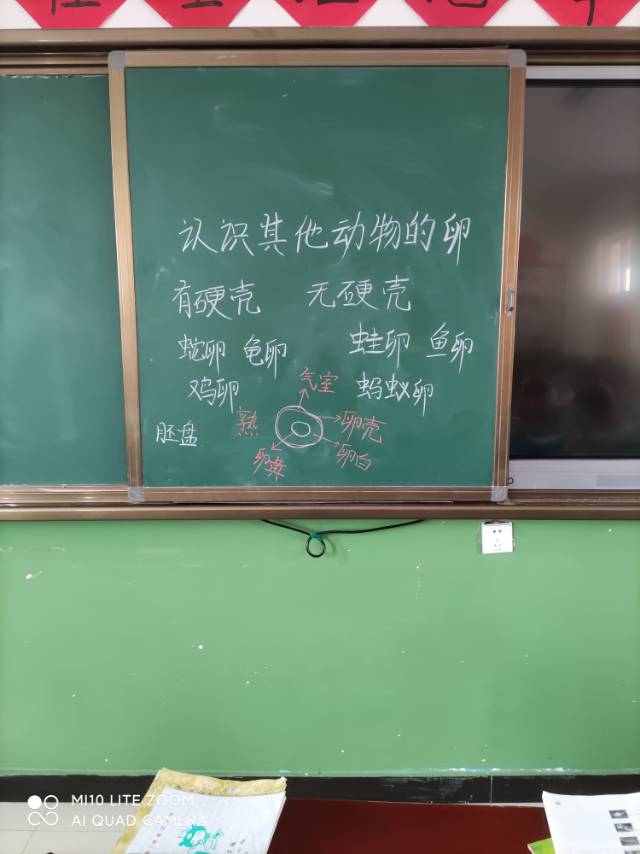 认识其他动物的卵
有硬壳 无硬壳
蛇卵 龟卵 蛙卵 鱼卵
鸡卵 蚂蚁卵
气室
胚盘 熟 卵壳
卵黄 卵白
MI10 LITE ZOOM
AI QUAD CAMERA